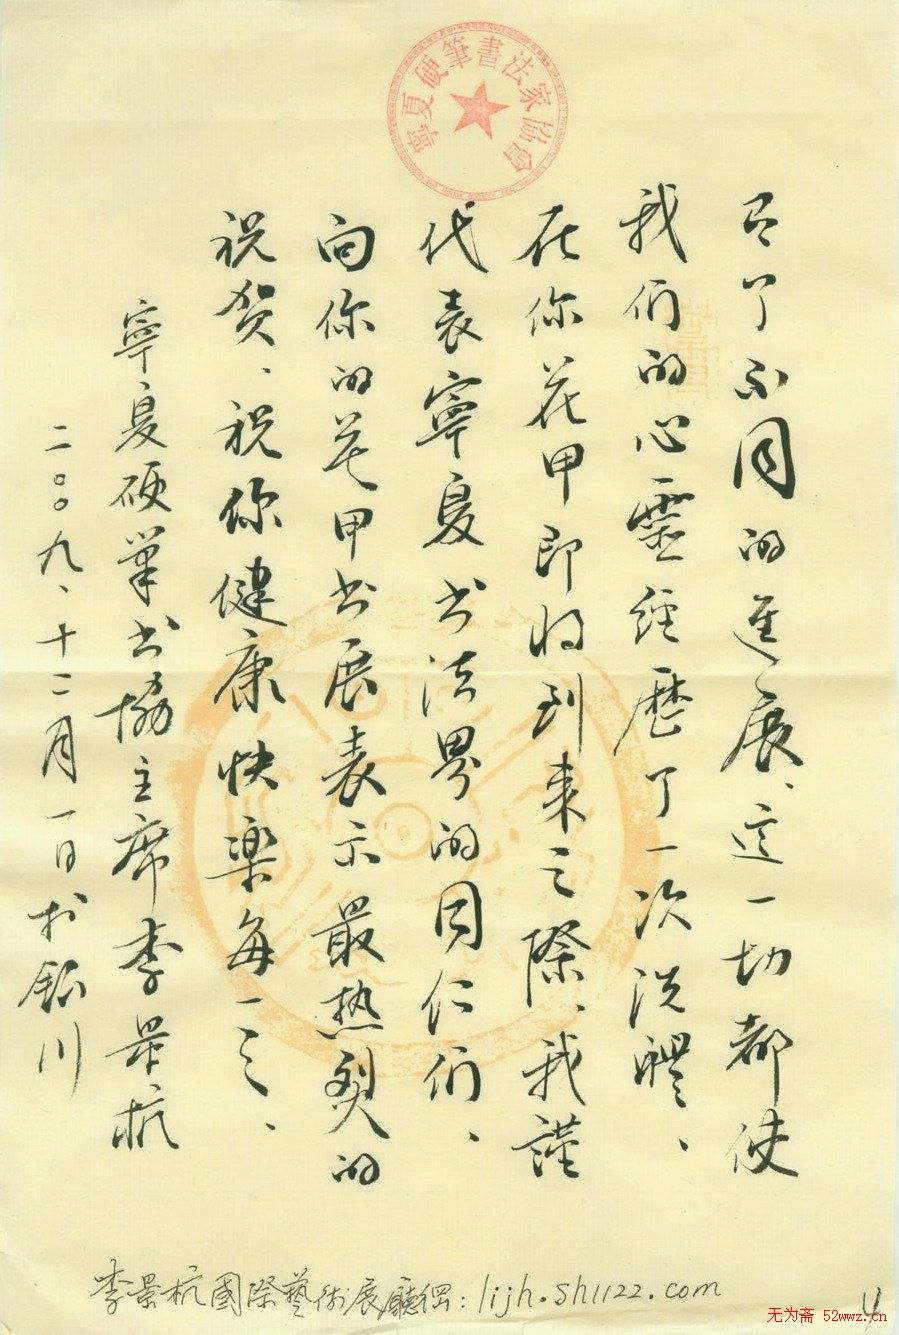 寧夏硬筆書法家協會
有了不同的進展、这一切都使
我们的心靈经歷了一次洗禮、
在你花甲即将到来之际、我謹
代表寧夏书法界的同仁们、
向你的花甲书展表示最热烈的
祝贺、祝你健康快樂每一天、
寧夏硬笔书协主席李景杭
二〇〇九、十二月一日於银川
李景杭國際藝術展廳網:lijh.sh1122.com
4
无为斋 52wwz.cn